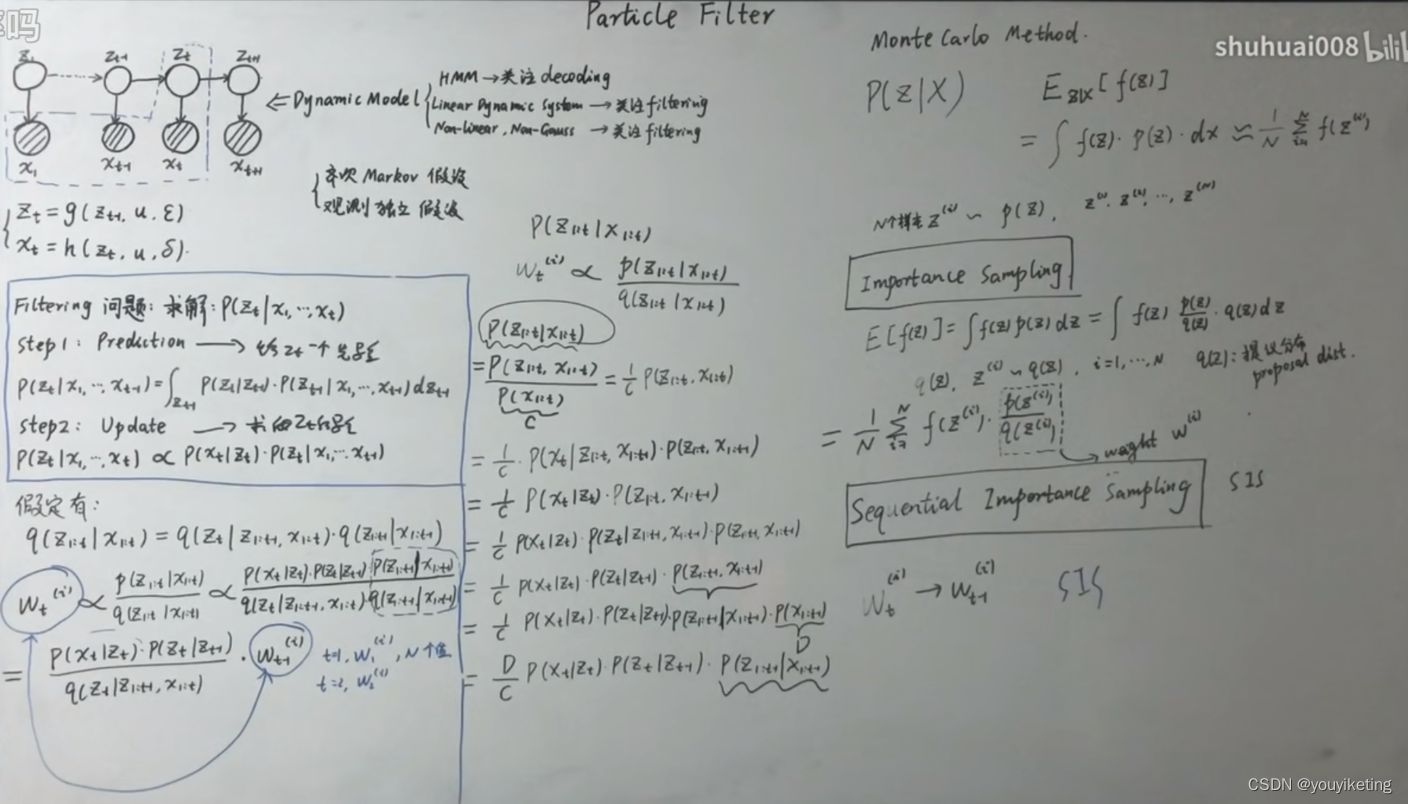 Particle Filter
shuhuai008 bilibili
z₁ z_{t-1} z_t z_{t+1}
x₁ x_{t-1} x_t x_{t+1}
⇐ Dynamic Model {
HMM → 关注 decoding
Linear Dynamic System → 关注 filtering
Non-linear, Non-Gauss → 关注 filtering
{ 齐次 Markov 假设
观测独立 假设
{ z_t = g(z_{t-1}, u, ε)
x_t = h(z_t, u, δ).
Filtering 问题: 求解: P(z_t | x₁, …, x_t)
Step1: Prediction → 给 z_t 一个先验
P(z_t | x₁, …, x_{t-1}) = ∫_{z_{t-1}} P(z_t | z_{t-1}) · P(z_{t-1} | x₁, …, x_{t-1}) dz_{t-1}
Step2: Update →
P(z_t | x₁, …, x_t) ∝ P(x_t | z_t) · P(z_t | x₁, …, x_{t-1})
假定有:
q(z_{1:t} | x_{1:t}) = q(z_t | z_{1:t-1}, x_{1:t}) · q(z_{1:t-1} | x_{1:t-1})
w_t^{(i)} ∝ p(z_{1:t} | x_{1:t}) / q(z_{1:t} | x_{1:t}) ∝ P(x_t | z_t) · P(z_t | z_{t-1}) · P(z_{1:t-1} | x_{1:t-1}) / q(z_t | z_{1:t-1}, x_{1:t}) · q(z_{1:t-1} | x_{1:t-1})
= P(x_t | z_t) · P(z_t | z_{t-1}) / q(z_t | z_{1:t-1}, x_{1:t}) · w_{t-1}^{(i)}
t=1, w₁^{(i)}, N个值
t=2, w₂^{(i)}
P(z_{1:t} | x_{1:t})
w_t^{(i)} ∝ p(z_{1:t} | x_{1:t}) / q(z_{1:t} | x_{1:t})
P(z_{1:t} | x_{1:t})
= P(z_{1:t}, x_{1:t}) / P(x_{1:t}) = 1/C P(z_{1:t}, x_{1:t})
C
= 1/C · P(x_t | z_{1:t}, x_{1:t-1}) · P(z_{1:t}, x_{1:t-1})
= 1/C P(x_t | z_t) · P(z_{1:t}, x_{1:t-1})
= 1/C P(x_t | z_t) · P(z_t | z_{1:t-1}, x_{1:t-1}) · P(z_{1:t-1}, x_{1:t-1})
= 1/C P(x_t | z_t) · P(z_t | z_{t-1}) · P(z_{1:t-1}, x_{1:t-1})
= 1/C P(x_t | z_t) · P(z_t | z_{t-1}) · P(z_{1:t-1} | x_{1:t-1}) · P(x_{1:t-1})
D
= D/C P(x_t | z_t) · P(z_t | z_{t-1}) · P(z_{1:t-1} | x_{1:t-1})
Monte Carlo Method.
P(z | X) E_{z|x}[f(z)]
= ∫ f(z) · p(z) · dx ≈ 1/N Σ_{i=1}^{N} f(z^{(i)})
N个样本 z^{(i)} ~ p(z), z^{(1)}, z^{(2)}, …, z^{(N)}
Importance Sampling
E[f(z)] = ∫ f(z) p(z) dz = ∫ f(z) p(z)/q(z) · q(z) dz
q(z), z^{(i)} ~ q(z), i=1, …, N q(z): 提议分布
proposal dist.
= 1/N Σ_{i=1}^{N} f(z^{(i)}) · p(z^{(i)}) / q(z^{(i)})
waght w^{(i)}
Sequential Importance Sampling SIS
w_t^{(i)} → w_{t-1}^{(i)} SIS
CSDN @youyiketing